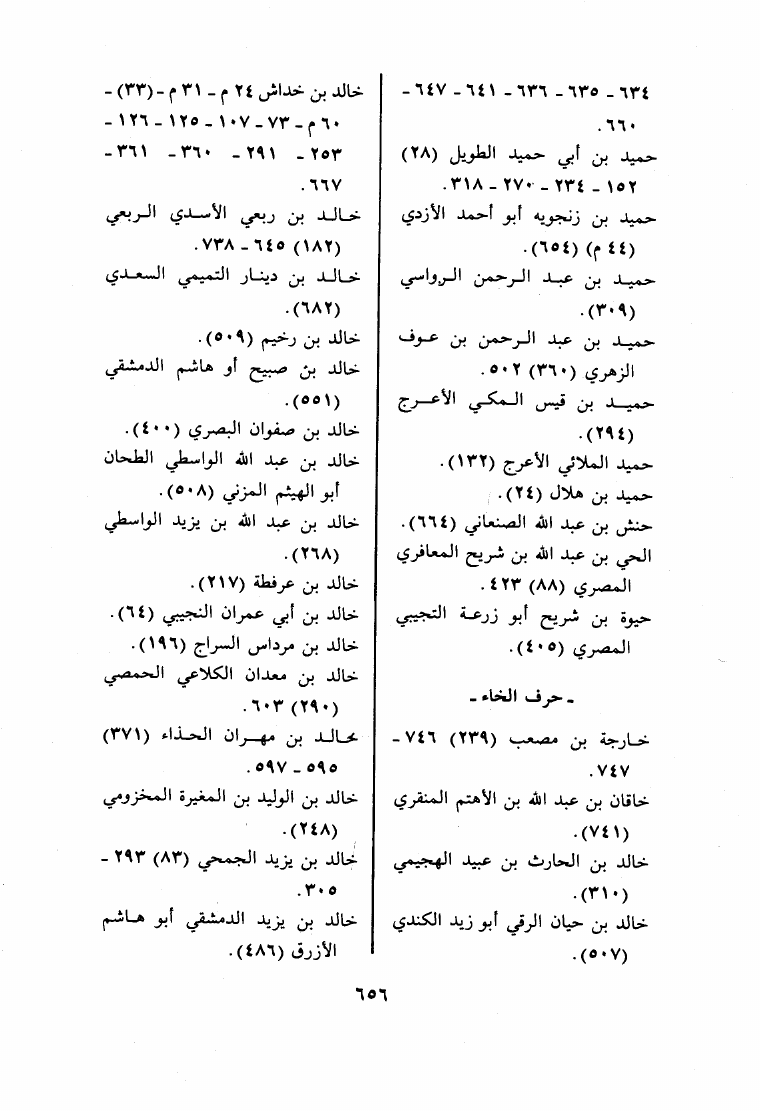 ٦٣٤ ـ ٦٣٥ ـ ٦٣٦ ـ ٦٤١ ـ ٦٤٧ ـ
٦٦٠ .
حميد بن أبي حميد الطويل (٢٨)
١٥٢ ـ ٢٣٤ ـ ٢٧٠ ـ ٣١٨ .
حميد بن زنجويه أبو أحمد الأزدي
(٤٤ م) (٦٥٤) .
حميد بن عبد الرحمن الرواسي
(٣٠٩) .
حميد بن عبد الرحمن بن عوف
الزهري (٣٦٠) ٥٠٢ .
حميد بن قيس المكي الأعرج
(٢٩٤) .
حميد الملائي الأعرج (١٣٢) .
حميد بن هلال (٢٤) .
حنش بن عبد الله الصنعاني (٦٦٤) .
الحي بن عبد الله بن شريح المعافري
المصري (٨٨) ٤٢٣ .
حيوة بن شريح أبو زرعة التجيبي
المصري (٤٠٥) .
ـ حرف الخاء ـ
خارجة بن مصعب (٢٣٩) ٧٤٦ ـ
٧٤٧ .
خاقان بن عبد الله بن الأهتم المنقري
(٧٤١) .
خالد بن الحارث بن عبيد الهجيمي
(٣١٠) .
خالد بن حيان الرقي أبو زيد الكندي
(٥٠٧) .
خالد بن خداش ٢٤ م ـ ٣١ م ـ (٣٣) ـ
٦٠ م ـ ٧٣ ـ ١٠٧ ـ ١٢٥ ـ ١٢٦ ـ
٢٥٣ ـ ٢٩١ ـ ٣٦٠ ـ ٣٦١ ـ
٦٦٧ .
خالد بن ربعي الأسدي الربعي
(١٨٢) ٦٤٥ ـ ٧٣٨ .
خالد بن دينار التميمي السعدي
(٦٨٢) .
خالد بن رخيم (٥٠٩) .
خالد بن صبيح أو هاشم الدمشقي
(٥٥١) .
خالد بن صفوان البصري (٤٠٠) .
خالد بن عبد الله الواسطي الطحان
أبو الهيثم المزني (٥٠٨) .
خالد بن عبد الله بن يزيد الواسطي
(٢٦٨) .
خالد بن عرفطة (٢١٧) .
خالد بن أبي عمران النجيبي (٦٤) .
خالد بن مرداس السراج (١٩٦) .
خالد بن معدان الكلاعي الحمصي
(٢٩٠) ٦٠٣ .
خالد بن مهران الحذاء (٣٧١)
٥٩٥ ـ ٥٩٧ .
خالد بن الوليد بن المغيرة المخزومي
(٢٤٨) .
خالد بن يزيد الجمحي (٨٣) ٢٩٣ ـ
٣٠٥ .
خالد بن يزيد الدمشقي أبو هاشم
الأزرق (٤٨٦) .
٦٥٦